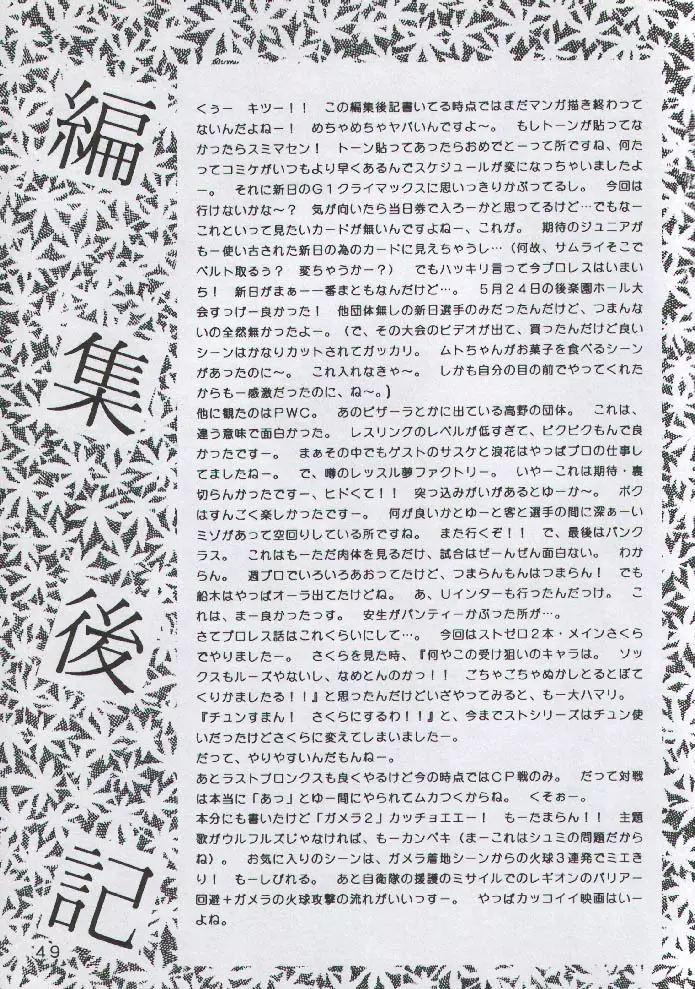 編集後記
くぅー　キツー！！　この編集後記書いてる時点ではまだマンガ描き終わって
ないんだよねー！　めちゃめちゃヤバいんですよ〜。　もしトーンが貼ってな
かったらスミマセン！　トーン貼ってあったらおめでとーって所ですね、何た
ってコミケがいつもより早くあるんでスケジュールが変になっちゃいましたよ
ー。　それに新日のＧ１クライマックスに思いっきりかぶってるし。　今回は
行けないかな〜？　気が向いたら当日券で入ろーかと思ってるけど…でもなー
これといって見たいカードが無いんですよねー、これが。　期待のジュニアが
もー使い古された新日の為のカードに見えちゃうし…（何故、サムライそこで
ベルト取るぅ？　変ちゃうかー？）　でもハッキリ言って今プロレスはいまい
ち！　新日がまぁーー番まともなんだけど…。　５月２４日の後楽園ホール大
会すっげー良かった！　他団体無しの新日選手のみだったんだけど、つまんな
いの全然無かったよー。（で、その大会のビデオが出て、買ったんだけど良い
シーンはかなりカットされてガッカリ。　ムトちゃんがお菓子を食べるシーン
があったのに〜。　これ入れなきゃ〜。　しかも自分の目の前でやってくれた
からもー感激だったのに、ね〜。）
他に観たのはＰＷＣ。　あのピザーラとかに出ている高野の団体。　これは、
違う意味で面白かった。　レスリングのレベルが低すぎて、ピクピクもんで良
かったですー。　まぁその中でもゲストのサスケと浪花はやっぱプロの仕事し
てましたねー。　で、噂のレッスル夢ファクトリー。　いやーこれは期待・裏
切らんかったですー、ヒドくて！！　突っ込みがいがあるとゆーか〜。　ボク
はすんごく楽しかったですー。　何が良いかとゆーと客と選手の間に深ぁーい
ミゾがあって空回りしている所ですね。　また行くぞ！！　で、最後はパンク
ラス。　これはもーただ肉体を見るだけ、試合はぜーんぜん面白ない。　わか
らん。　週プロでいろいろあおってたけど、つまらんもんはつまらん！　でも
船木はやっぱオーラ出てたけどね。　あ、Ｕインターも行ったんだっけ。　こ
れは、まー良かったっす。　安生がパンティーかぶった所が…。
さてプロレス話はこれくらいにして…。　今回はストゼロ２本・メインさくら
でやりましたー。　さくらを見た時、『何やこの受け狙いのキャラは。　ソッ
クスもルーズやないし、なめとんのかっ！！　ごちゃごちゃぬかしとるとぼて
くりかましたる！！』と思ったんだけどいざやってみると、もー大ハマリ。
『チュンすまん！　さくらにするわ！！』と、今までストシリーズはチュン使
いだったけどさくらに変えてしまいましたー。
だって、やりやすいんだもんねー。
あとラストブロンクスも良くやるけど今の時点ではＣＰ戦のみ。　だって対戦
は本当に「あっ」とゆー間にやられてムカつくからね。　くそぉー。
本分にも書いたけど「ガメラ２」カッチョエエー！　もーたまらん！！　主題
歌がウルフルズじゃなければ、もーカンペキ（まーこれはシュミの問題だから
ね）。　お気に入りのシーンは、ガメラ着地シーンからの火球３連発でミエき
り！　もーしびれる。　あと自衛隊の援護のミサイルでのレギオンのバリアー
回避＋ガメラの火球攻撃の流れがいいっすー。　やっぱカッコイイ映画はいー
よね。
49